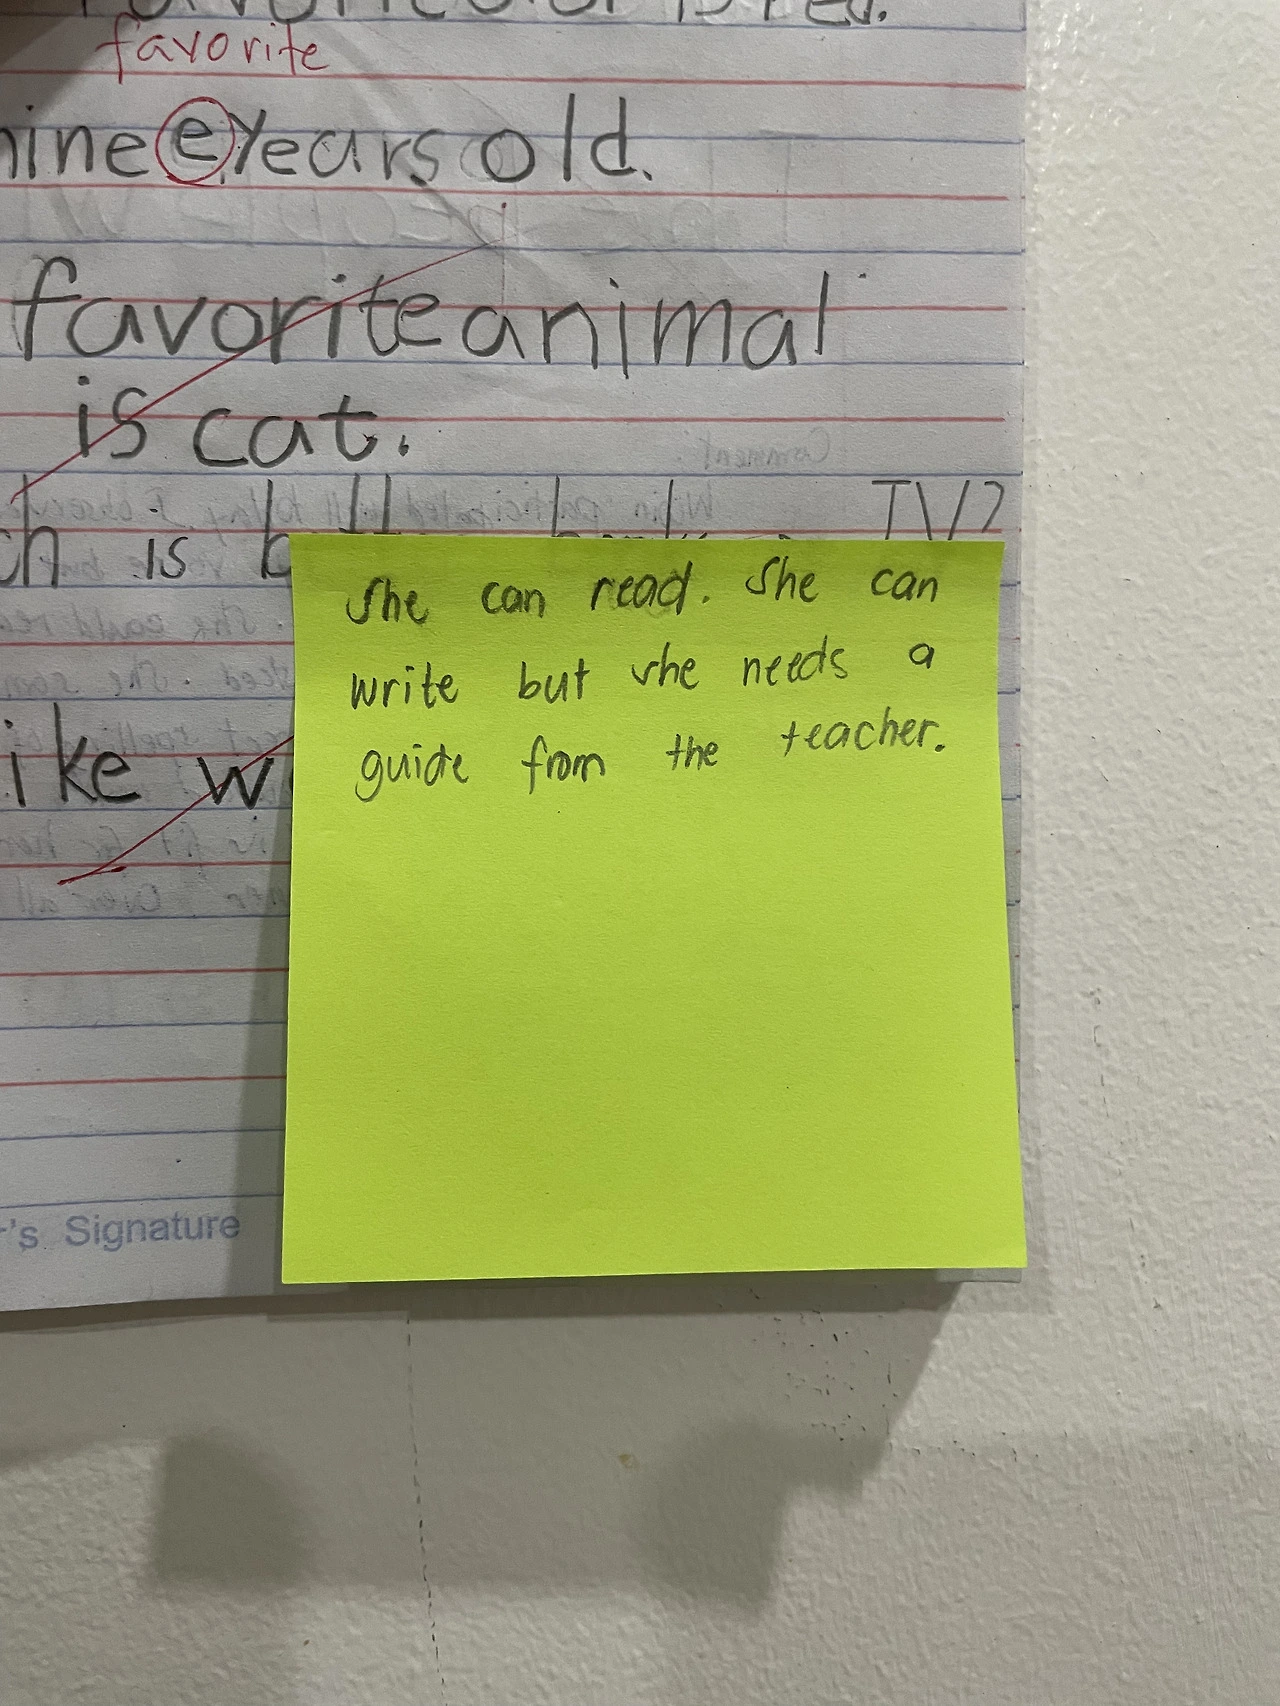 favorite
nine e years old.
favorite animal
is cat.
is TV?
She can read. She can
write but she needs a
guide from the teacher.
ike
's Signature